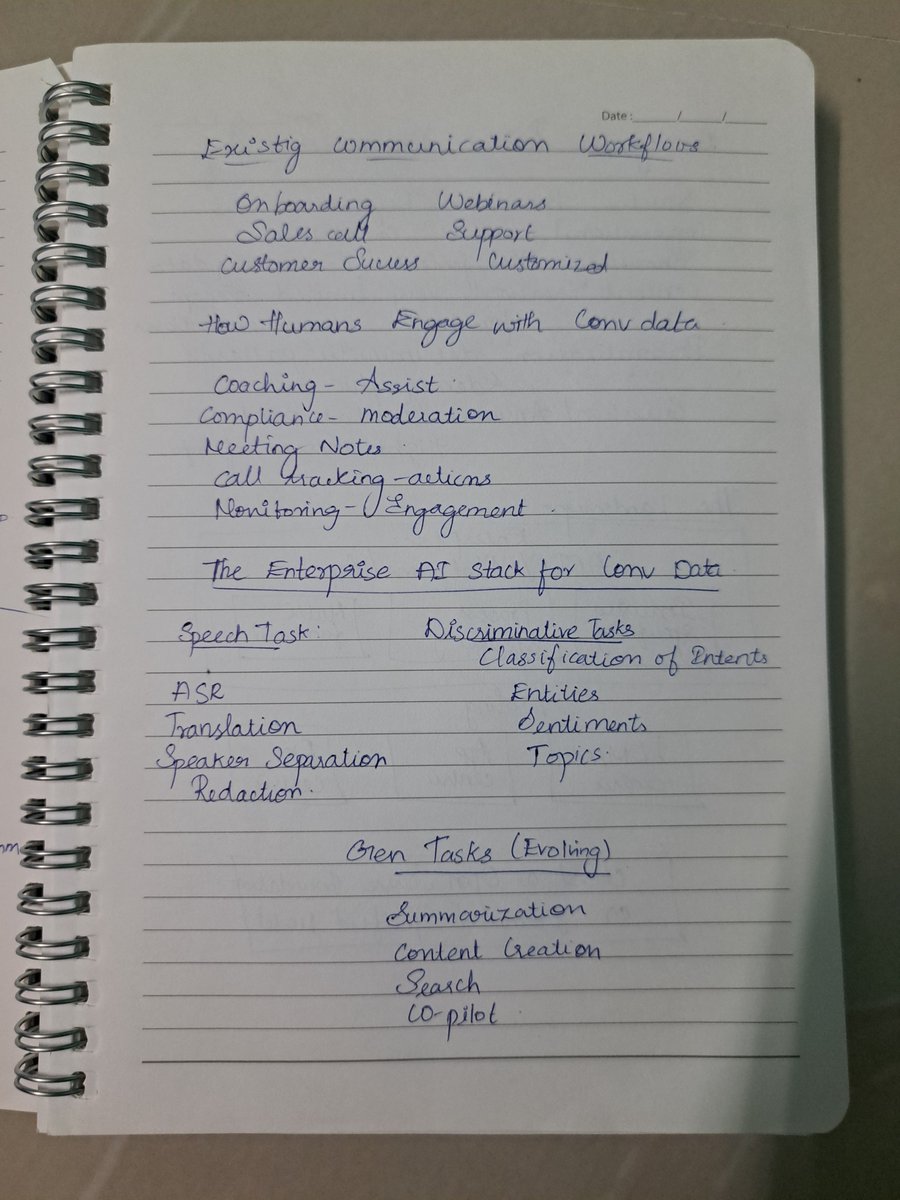 Date : / /
Existig Communication Workflows
Onboarding Webinars
Sales call Support
Customer Sucess Customized
How Humans Engage with Conv data
Coaching - Assist
Compliance - moderation
Meeting Notes
Call tracking - actions
Monitoring - Engagement
The Enterprise AI Stack for Conv Data
Speech Task : Discriminative Tasks
Classification of Intents
ASR Entities
Translation Sentiments
Speaker Separation Topics.
Redaction.
Gen Tasks (Evolving)
Summarization
Content Creation
Search
CO-pilot